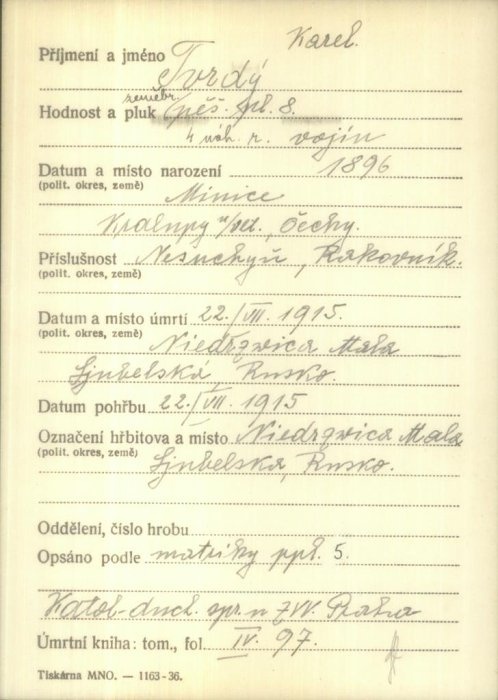 Karel.
Příjmení a jméno Tvrdý
zeměbr.
Hodnost a pluk pěš. pl. 8.
4 náh. r. vojín
Datum a místo narození 1896
(polit. okres, země) Minice
Kralupy n/vlt., Čechy.
Příslušnost Nesuchyň, Rakovník.
(polit. okres, země)
Datum a místo úmrtí 22./VII. 1915.
(polit. okres, země) Niedrzwica Mala
Ljubelská, Rusko.
Datum pohřbu 22./VII. 1915
Označení hřbitova a místo Niedrzwica Mala
(polit. okres, země) Ljubelska, Rusko.
Oddělení, číslo hrobu
Opsáno podle matriky ppl. 5.
Katol. duch. spr. u ZVV. Praha
Úmrtní kniha: tom., fol. IV. 97.
Tiskárna MNO. — 1163-36.